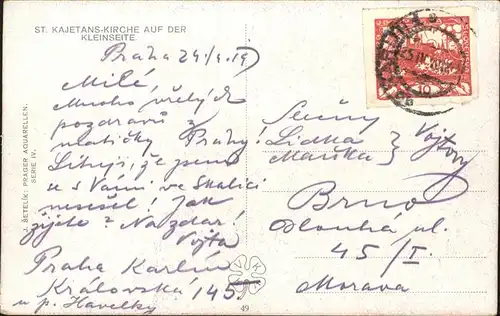 ST. KAJETANS-KIRCHE AUF DER
KLEINSEITE.
J. ŠETELÍK: PRAGER AQUARELLEN.
SERIE IV.
Praha 24/4 19
Milé,
Mnoho vřelých
pozdravů z
matičky Prahy!
Lituji, že jsme
se s Vámi ve Skalici
nesešel! Jak
žijete? Na zdar!
Vojta
Praha Karlín
Královská 145
u p. Havelky
Slečny
Lidka
Mařka
Vojtovy
Brno
Dlouhá ul.
45/I.
Morava
10
49